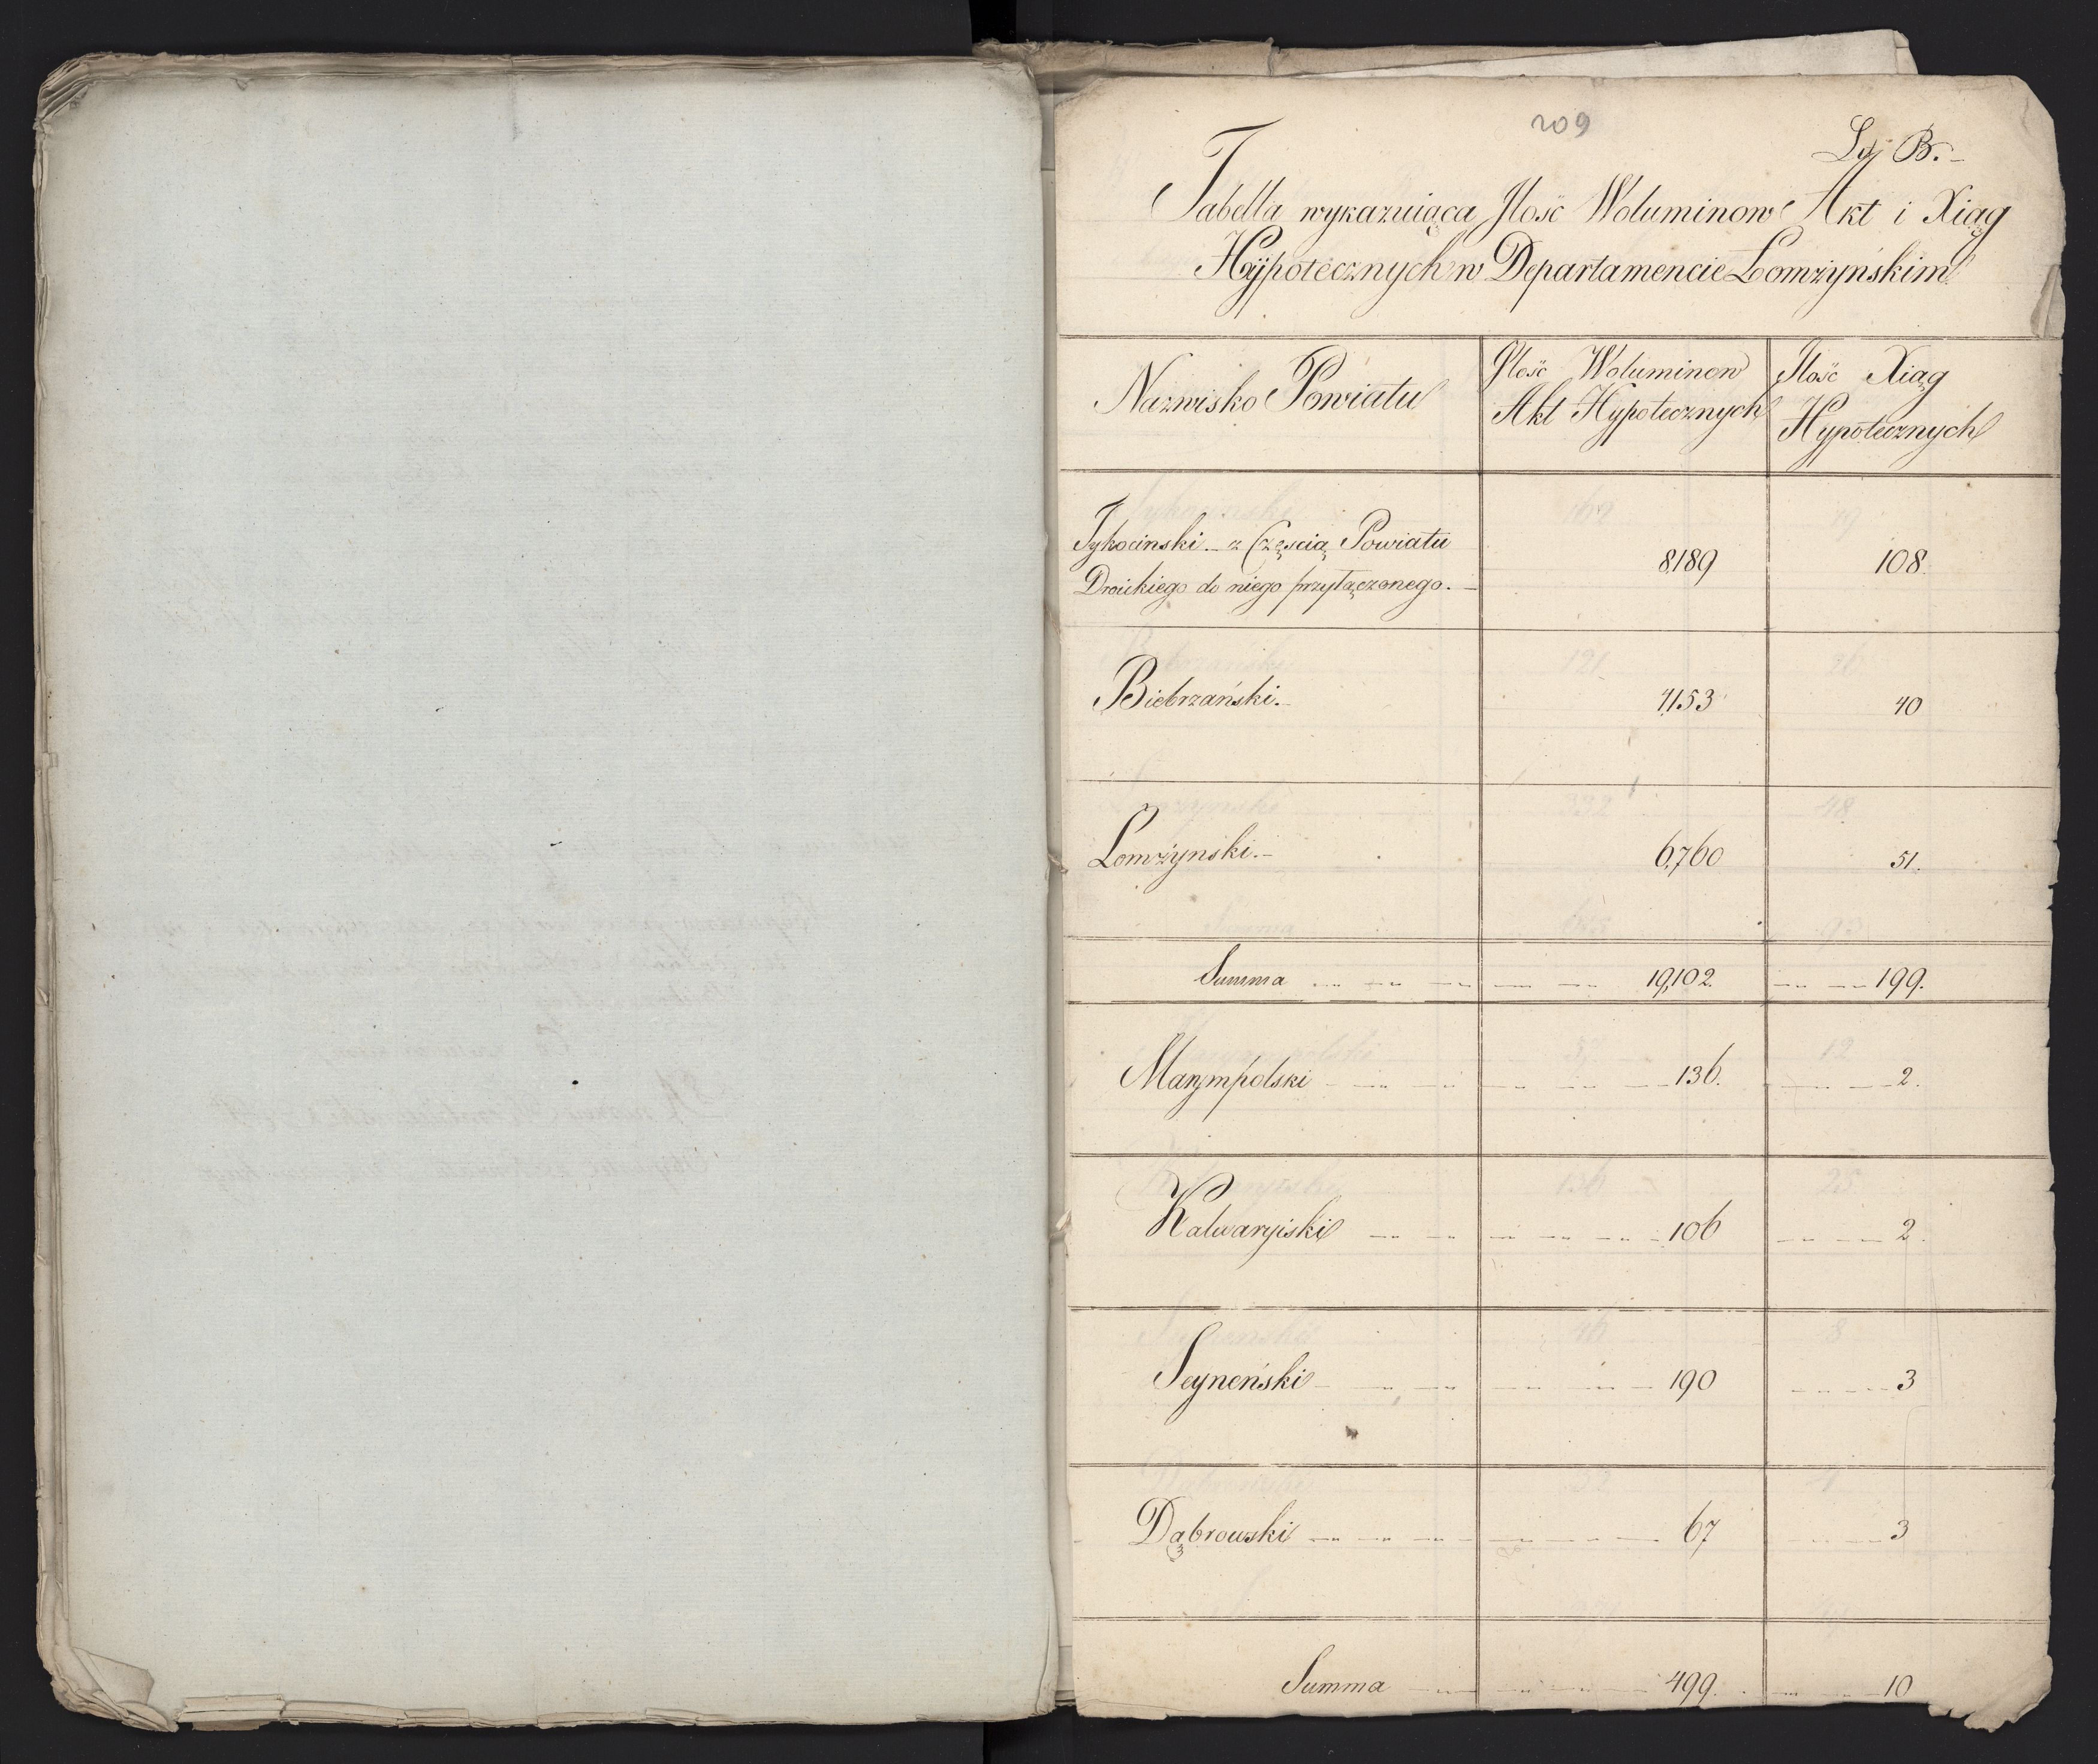 209
Lit B.
Tabella wykazuiąca Ilość Woluminow Akt i Xiąg
Hypotecznych w Departamencie Łomżyńskim
Nazwisko Powiatu
Ilość Woluminow
Akt Hypotecznych
Ilość Xiąg
Hypotecznych
Tykocinski z Częscią Powiatu
Droickiego do niego przyłączonego.
8189
108.
Biebrzański.
4,153
40
Łomżyński.
6,760
51.
Summa 19,102. 199.
Marympolski 136. 2.
Kalwaryiski 106 2.
Seyneński 190 3
Dąbrowski 67 3
Summa 499. 10